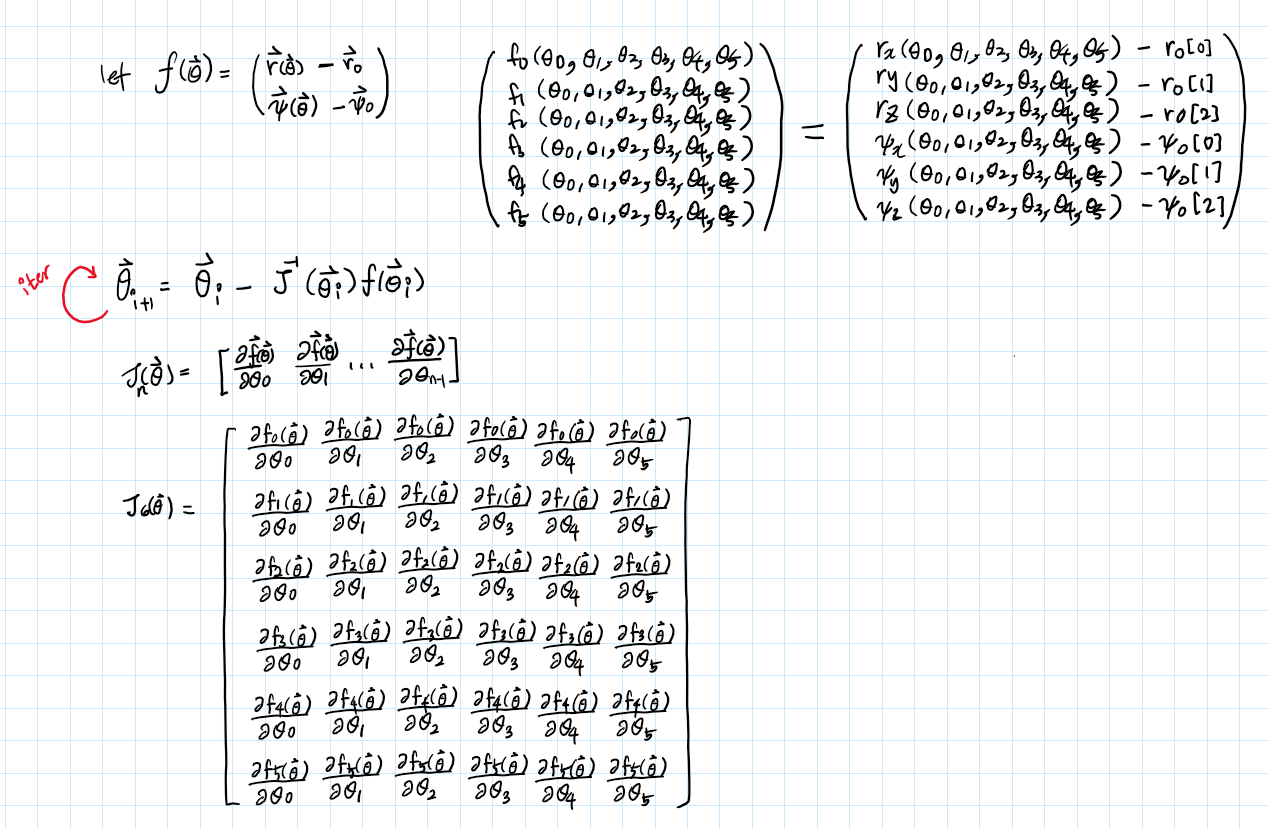 let f(θ⃗) = ( r⃗(θ⃗) − r⃗₀
ψ⃗(θ⃗) − ψ⃗₀ )
( f₀(θ₀, θ₁, θ₂, θ₃, θ₄, θ₅)
f₁(θ₀, θ₁, θ₂, θ₃, θ₄, θ₅)
f₂(θ₀, θ₁, θ₂, θ₃, θ₄, θ₅)
f₃(θ₀, θ₁, θ₂, θ₃, θ₄, θ₅)
f₄(θ₀, θ₁, θ₂, θ₃, θ₄, θ₅)
f₅(θ₀, θ₁, θ₂, θ₃, θ₄, θ₅) )
=
( rx(θ₀, θ₁, θ₂, θ₃, θ₄, θ₅) − r₀[0]
ry(θ₀, θ₁, θ₂, θ₃, θ₄, θ₅) − r₀[1]
rz(θ₀, θ₁, θ₂, θ₃, θ₄, θ₅) − r₀[2]
ψx(θ₀, θ₁, θ₂, θ₃, θ₄, θ₅) − ψ₀[0]
ψy(θ₀, θ₁, θ₂, θ₃, θ₄, θ₅) − ψ₀[1]
ψz(θ₀, θ₁, θ₂, θ₃, θ₄, θ₅) − ψ₀[2] )
iter
θ⃗ᵢ₊₁ = θ⃗ᵢ − J⁻¹(θ⃗ᵢ)f(θ⃗ᵢ)
Jₙ(θ⃗) = [ ∂f⃗(θ⃗)/∂θ₀ ∂f⃗(θ⃗)/∂θ₁ ... ∂f⃗(θ⃗)/∂θₙ₋₁ ]
J₆(θ⃗) =
[ ∂f₀(θ⃗)/∂θ₀ ∂f₀(θ⃗)/∂θ₁ ∂f₀(θ⃗)/∂θ₂ ∂f₀(θ⃗)/∂θ₃ ∂f₀(θ⃗)/∂θ₄ ∂f₀(θ⃗)/∂θ₅
∂f₁(θ⃗)/∂θ₀ ∂f₁(θ⃗)/∂θ₁ ∂f₁(θ⃗)/∂θ₂ ∂f₁(θ⃗)/∂θ₃ ∂f₁(θ⃗)/∂θ₄ ∂f₁(θ⃗)/∂θ₅
∂f₂(θ⃗)/∂θ₀ ∂f₂(θ⃗)/∂θ₁ ∂f₂(θ⃗)/∂θ₂ ∂f₂(θ⃗)/∂θ₃ ∂f₂(θ⃗)/∂θ₄ ∂f₂(θ⃗)/∂θ₅
∂f₃(θ⃗)/∂θ₀ ∂f₃(θ⃗)/∂θ₁ ∂f₃(θ⃗)/∂θ₂ ∂f₃(θ⃗)/∂θ₃ ∂f₃(θ⃗)/∂θ₄ ∂f₃(θ⃗)/∂θ₅
∂f₄(θ⃗)/∂θ₀ ∂f₄(θ⃗)/∂θ₁ ∂f₄(θ⃗)/∂θ₂ ∂f₄(θ⃗)/∂θ₃ ∂f₄(θ⃗)/∂θ₄ ∂f₄(θ⃗)/∂θ₅
∂f₅(θ⃗)/∂θ₀ ∂f₅(θ⃗)/∂θ₁ ∂f₅(θ⃗)/∂θ₂ ∂f₅(θ⃗)/∂θ₃ ∂f₅(θ⃗)/∂θ₄ ∂f₅(θ⃗)/∂θ₅ ]